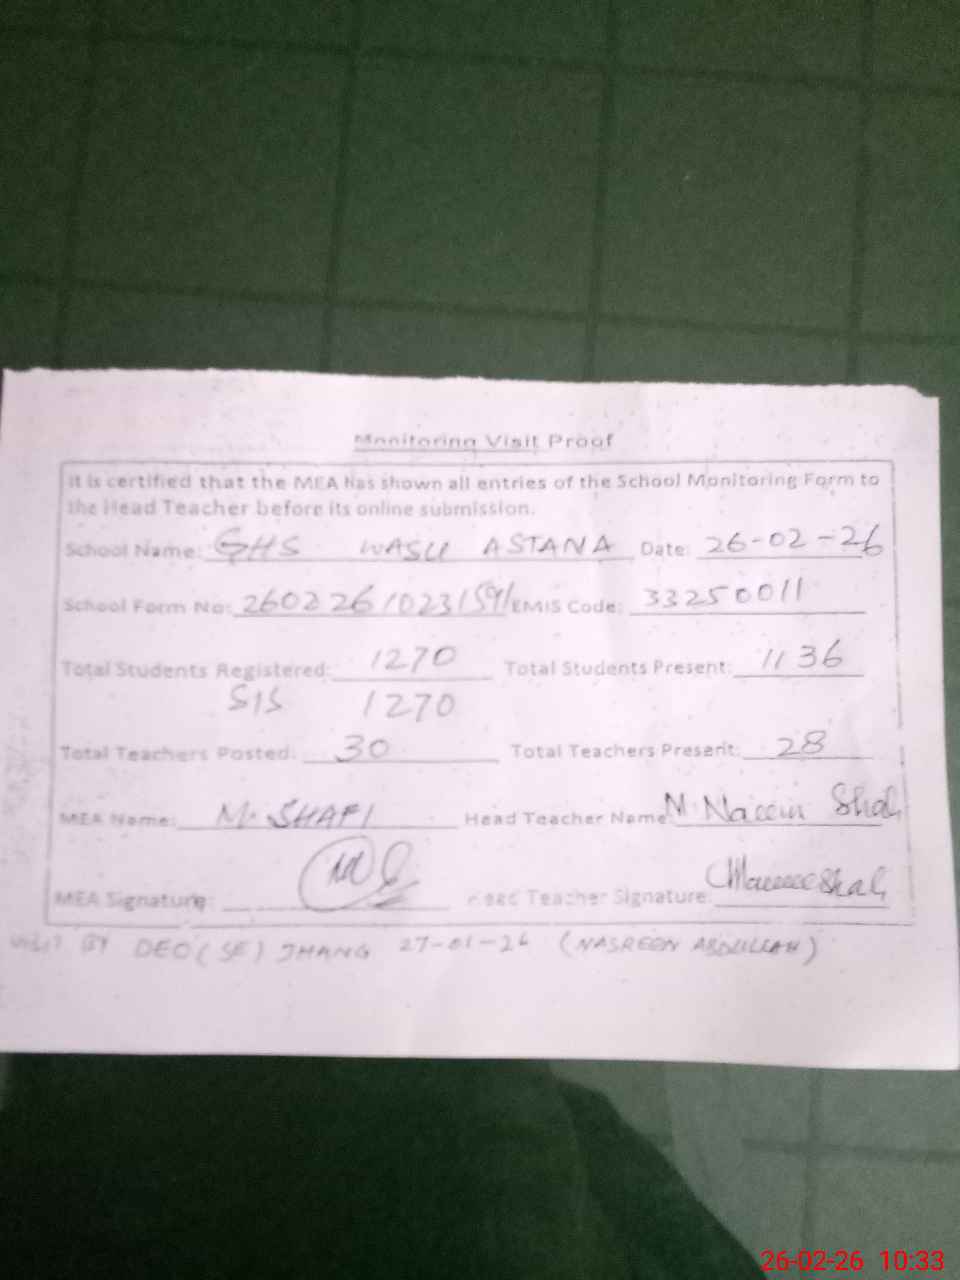 Monitoring Visit Proof
It is certified that the MEA has shown all entries of the School Monitoring Form to
the Head Teacher before its online submission.
School Name: GHS WASU ASTANA Date: 26-02-26
School Form No: EMIS Code: 33250011
Total Students Registered: 1270 Total Students Present: 1136
SIS 1270
Total Teachers Posted: 30 Total Teachers Present: 28
MEA Name: M. SHAFI Head Teacher Name: M. Naeem Shah
MEA Signature: Head Teacher Signature:
Visit BY DEO (SE) JHANG 27-01-26 (NASREEN ABDULLAH)
26-02-26 10:33